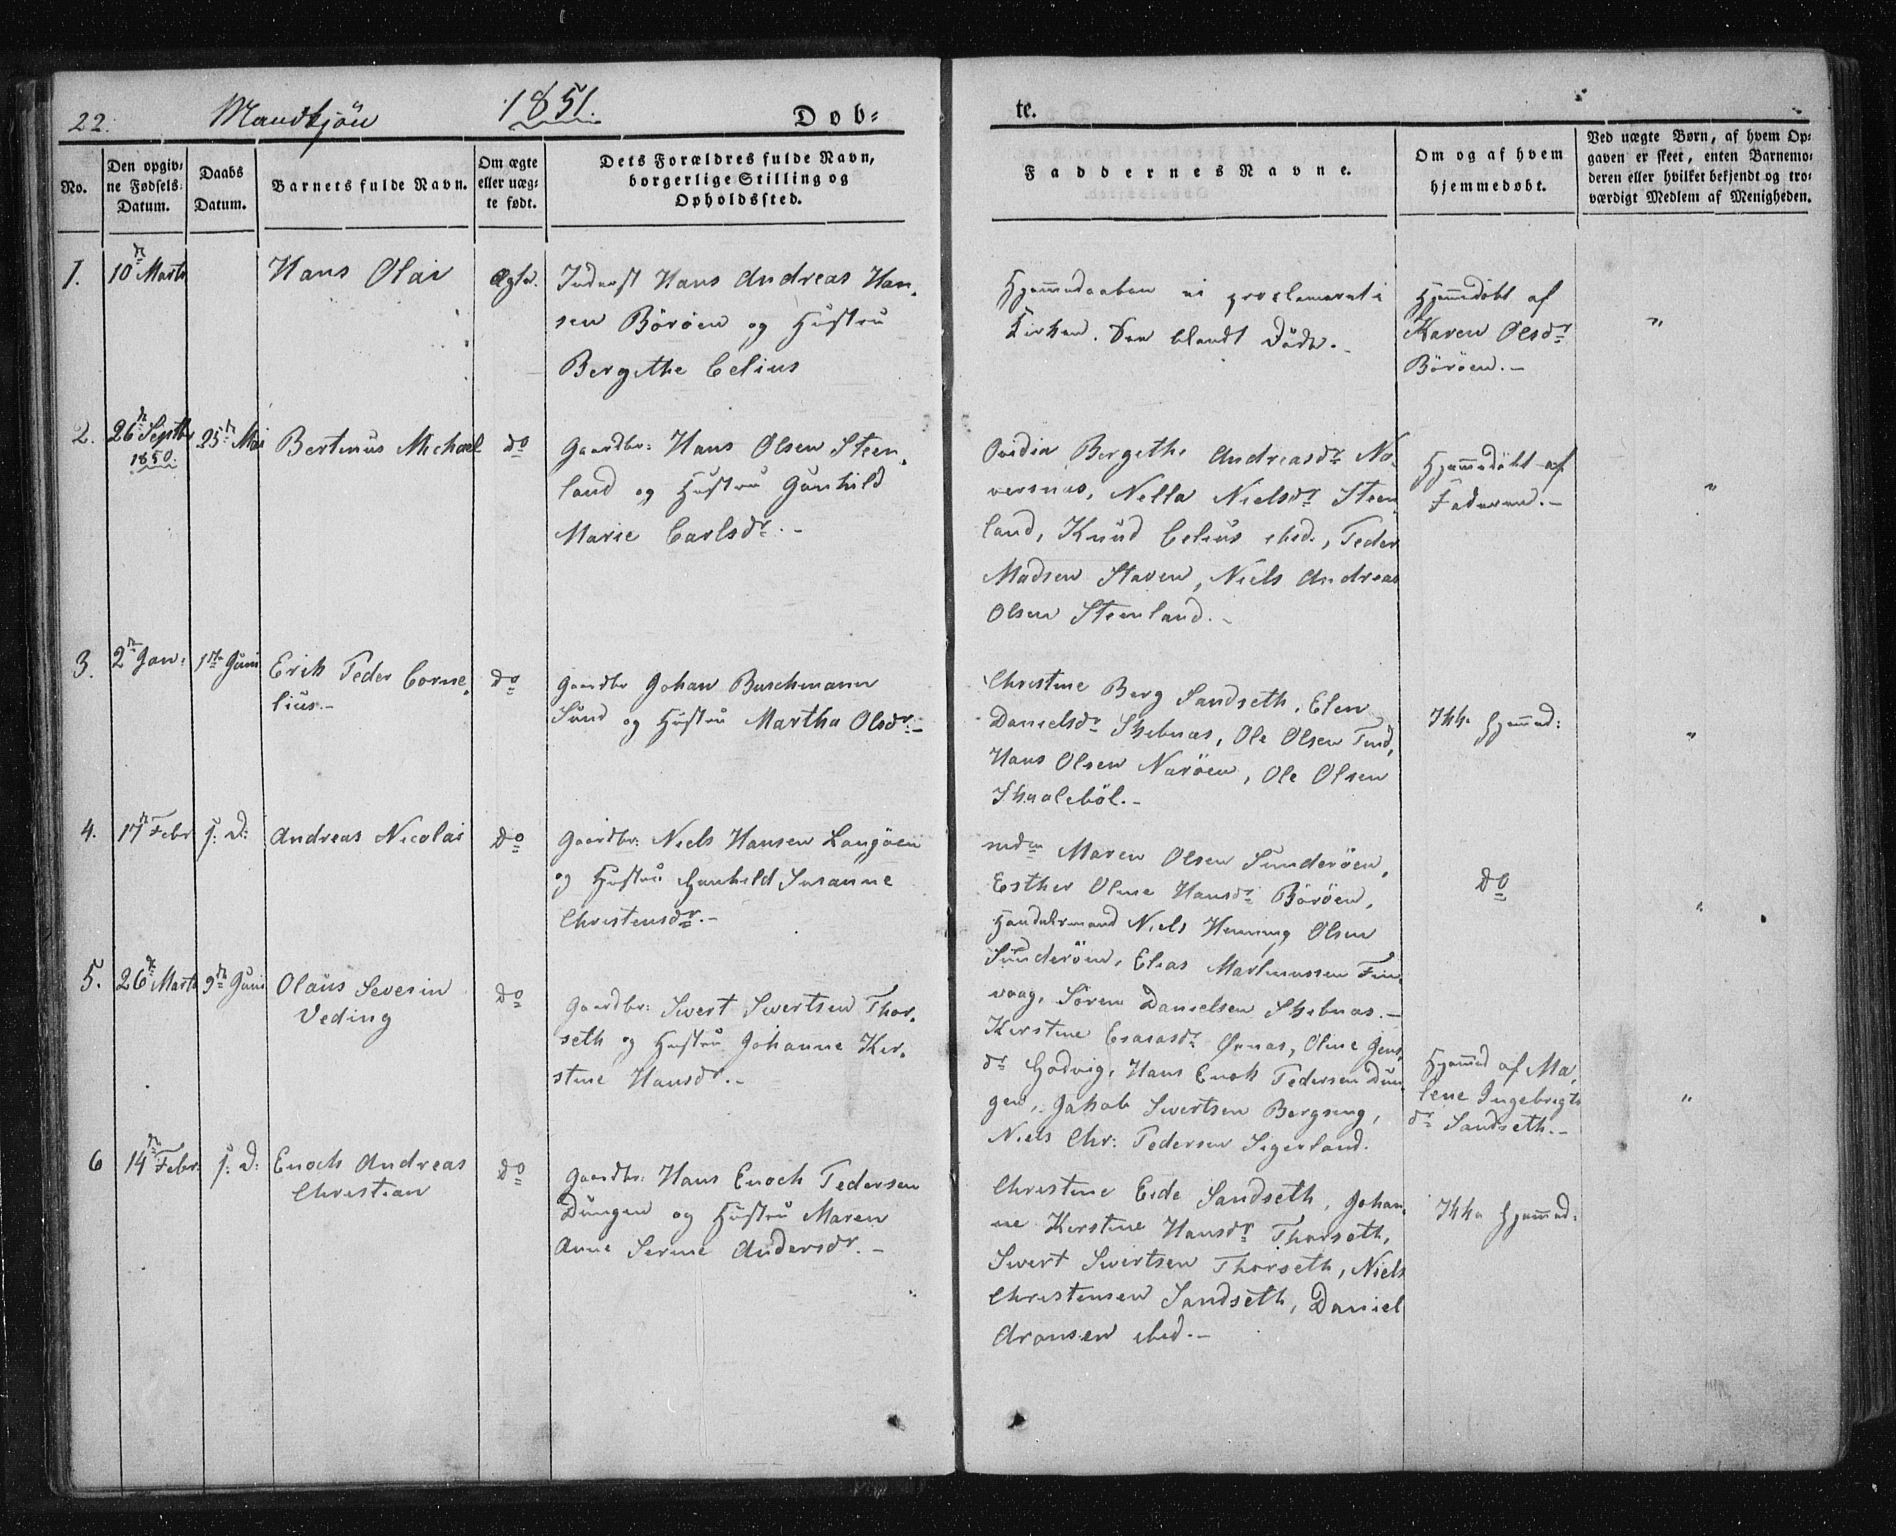 22. Mandkjön 1851. Døb-
te.
No.
Den opgiv-
ne Fødsels
Datum.
Daabs
Datum.
Barnets fulde Navn.
Om ægte
eller uæg-
te født.
Dets Forældres fulde Navn,
borgerlige Stilling og
Opholdssted.
Faddernes Navne.
Om og af hvem
hjemmedøbt.
Ved uægte Børn, af hvem Op-
gaven er skeet, enten Barnemo-
deren eller hvilket bekjendt og tro-
værdigt Medlem af Menigheden.
1.
10de Marts
Hans Olai
Ægte.
Inderst Hans Andreas Han-
sen Böröen og Hustru
Bergithe Celius
Hjemmedaaben ei proclameret i
Kirken. See blandt Döde.-
Hjemdöbt af
Karen Olsdr
Böröen.-
"
2.
26de Septbr
1850.
25de Mai
Bertinus Michael
do
Gaardbr: Hans Olsen Steen-
land og Hustru Gunhild
Marie Carlsdr.-
Ovidia Bergithe Andreasdr No-
versnas, Nella Nielsdr Steen
land, Knud Celius ibid., Peder
Madsen Staven, Niels Andreas
Olsen Steenland.-
Hjemmedöbt af
Faderen.-
"
3.
2den Jan:
1ste Juni
Erik Peder Corne-
lius.-
do
Gaardbr Johan Buschmann
Sund og Hustru Martha Olsdr.-
Christine Berg Sandseth, Elen
Danielsdr Skebnas, Ole Olsen Sund,
Hans Olsen Naröen, Ole Olsen
Skaaleböl.-
Ikke hjemmed:
"
4.
17de Febr
s: D:
Andreas Nicolai
Do
Gaardbr: Niels Hansen Langöen
og Hustru Gunhild Susanne
Christensdr.-
Mdm Maren Olsen Sunderöen,
Esther Oline Hansdr Böröen,
Handelsmand Niels Henning Olsen
Sunderöen, Elias Martinussen Fin-
vaag, Sören Danielsen Skebnas.-
Do
"
5.
26de Marts
9de Juni
Olaus Severin
Veding
Do
Gaardbr: Sivert Sivertsen Thor-
seth og Hustru Johanne Ker-
stine Hansdr.-
Kirstine Esaiasdr Ørnas, Oline Jens
dr Hodvig, Hans Enok Pedersen Dun
gen, Jakob Sivertsen Bergseng,
Niels Chr: Pedersen Sigerland.
Hjemmed af Ma-
lene Ingebrigts
dr Sandseth.-
"
6
14de Febr
s: D:
Enoch Andreas
Christian
Do
Gaardbr: Hans Enoch Pedersen
Dungen og Hustru Maren
Anne Serine Andersdr.-
Christine Eide Sandseth, Johan-
ne Kerstine Hansdr Thorseth,
Sivert Sivertsen Thorseth, Niels
Christensen Sandseth, Daniel
Aronsen ibid.-
Ikke hjemmed: